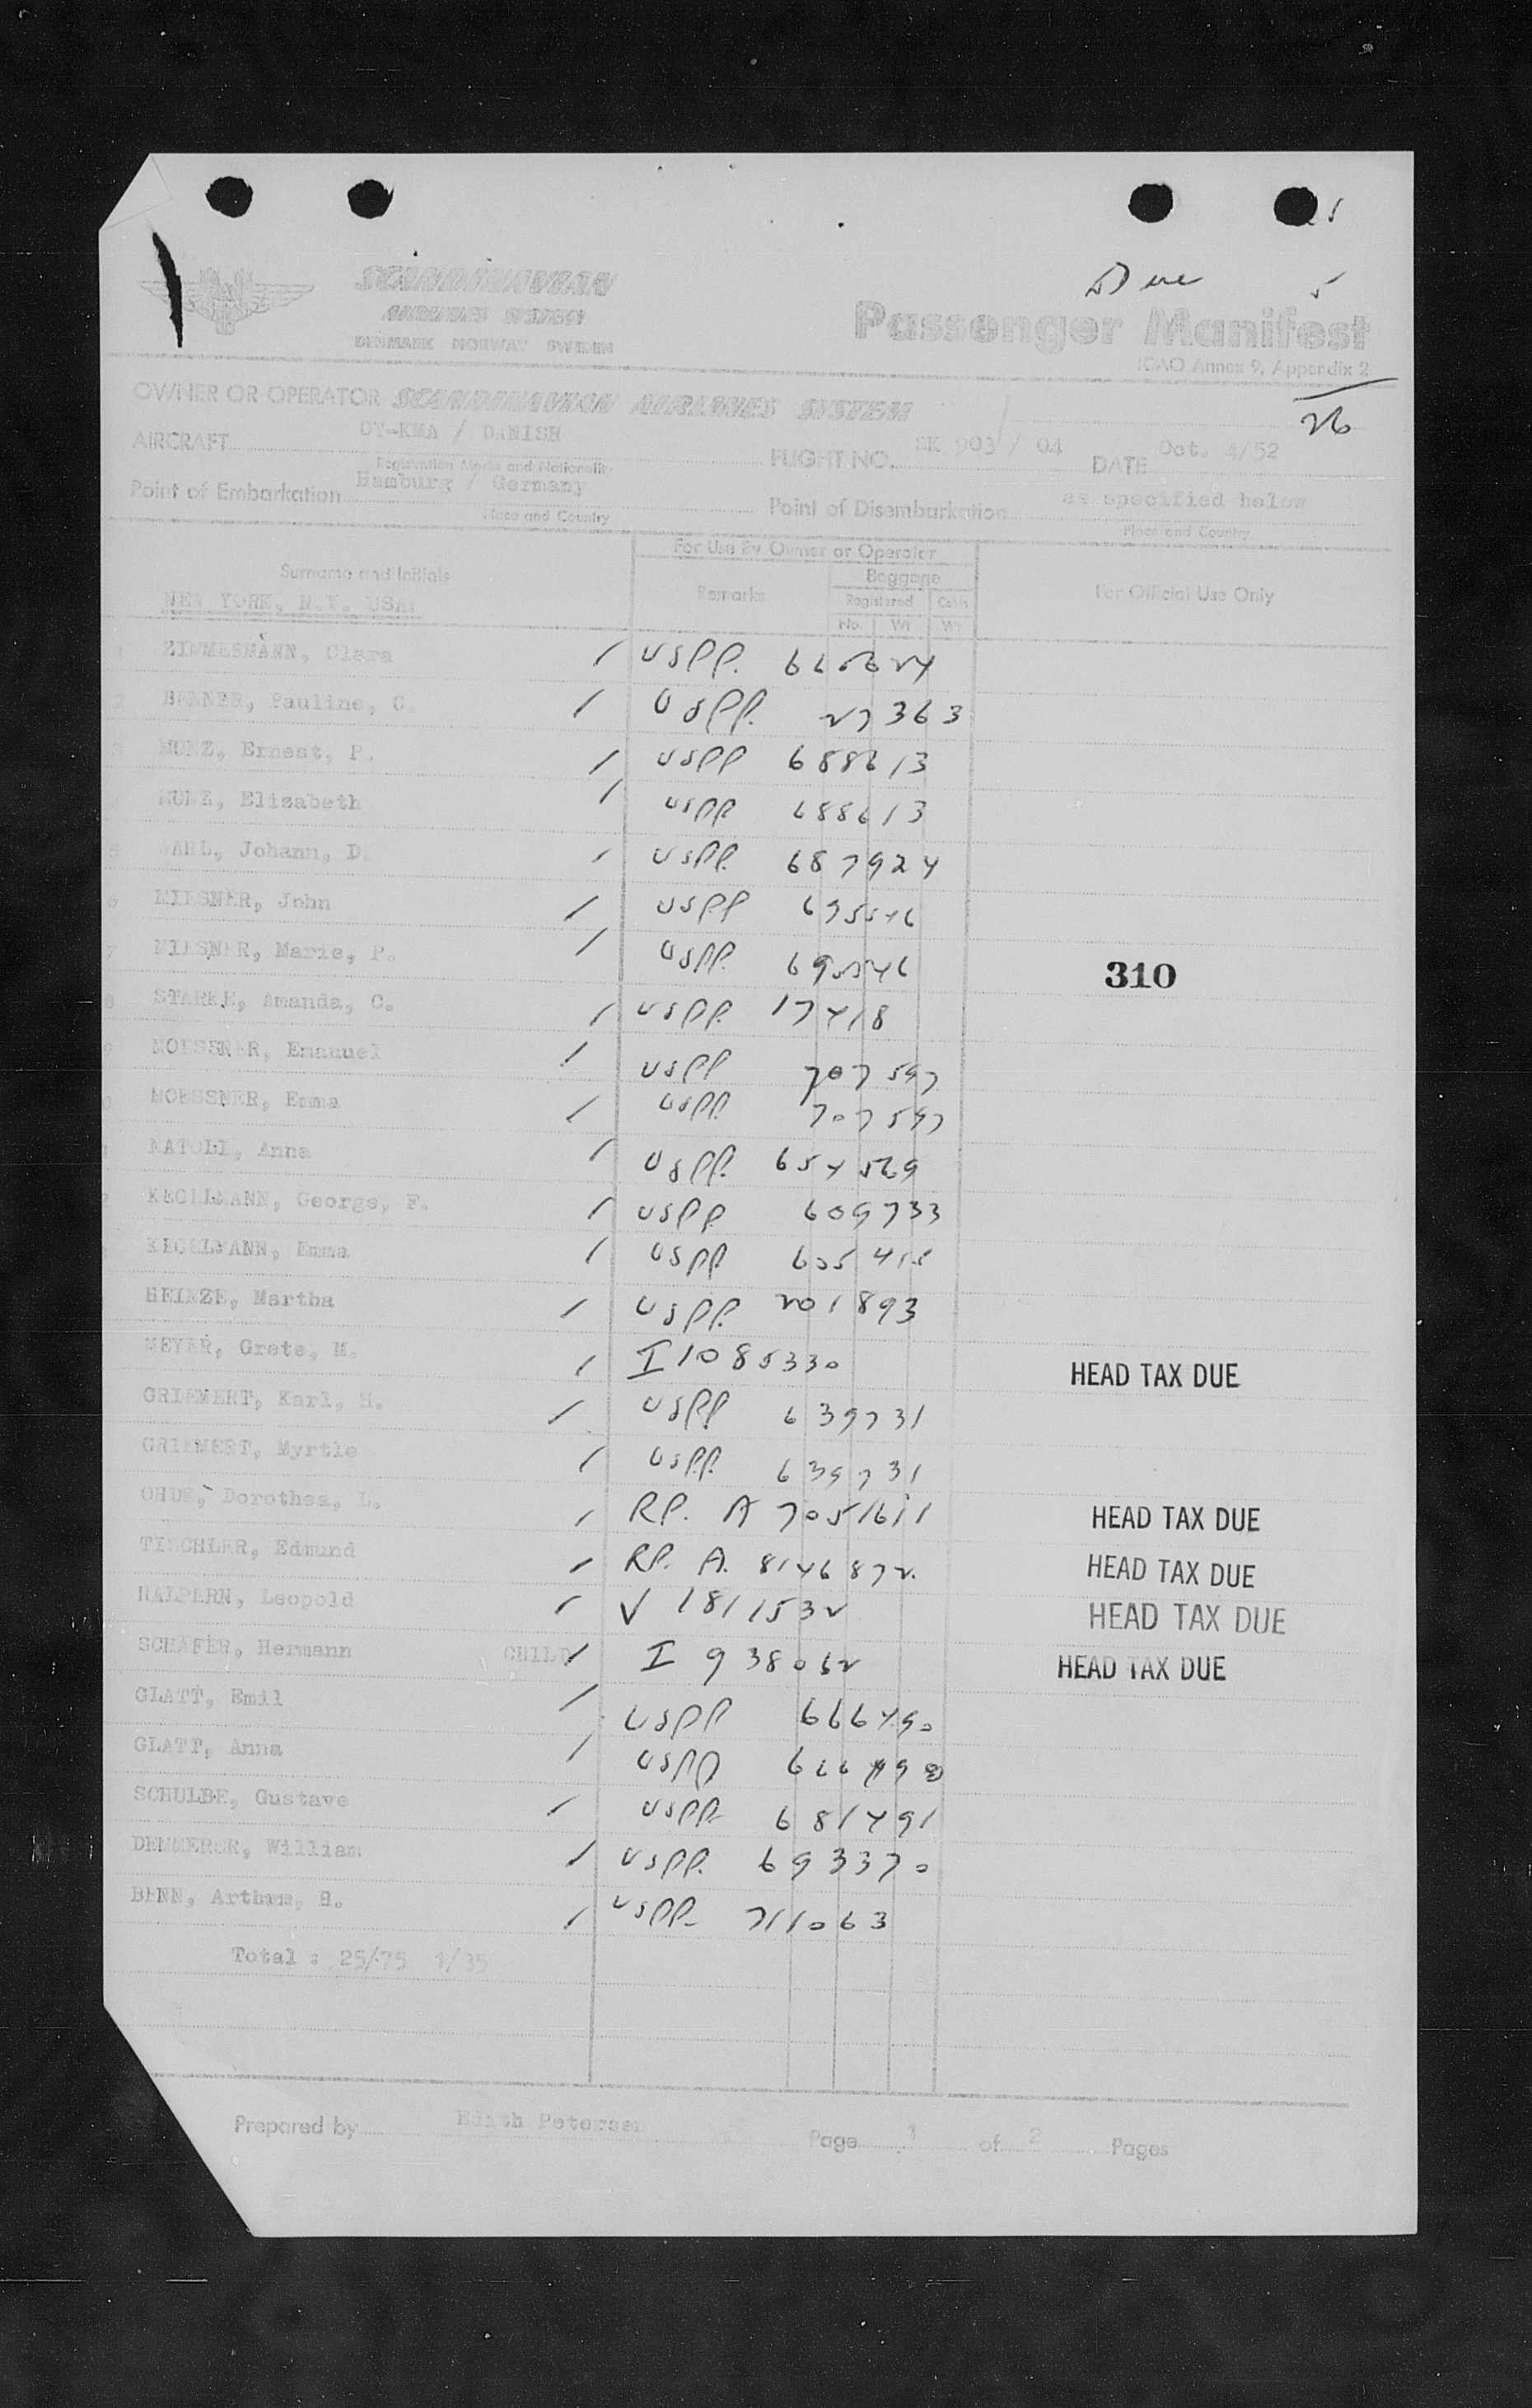 Due 5
SCANDINAVIAN
AIRLINES SYSTEM
DENMARK NORWAY SWEDEN
Passenger Manifest
ICAO Annex 9, Appendix 2
26
OWNER OR OPERATOR SCANDINAVIAN AIRLINES SYSTEM
AIRCRAFT OY-KMA / DANISH FLIGHT NO. SK 903 / 04 DATE Oct. 4/52
Registration Marks and Nationality
Point of Embarkation Hamburg / Germany Point of Disembarkation as specified below
Place and Country Place and Country
For Use By Owner or Operator
Surname and Initials Remarks Baggage For Official Use Only
Registered Cabin
No. Wt Wt
NEW YORK, N.Y. USA:
ZIMMERMANN, Clara / USPP.
Pauline, C. / USPP. 27363
Ernest, P. / USPP 688613
Elisabeth / USPP 688613
Johann, D. / USPP. 687924
MIESNER, John / USPP 695546
MIESNER, Marie, P. / USPP. 695546
STARKE, Amanda, C. / USPP. 17418
310
MOESSNER, Emanuel / USPP 707597
MOESSNER, Emma / USPP. 707597
Anna / USPP. 654569
KEGELMANN, George, F. / USPP 609733
KEGELMANN, Emma / USPP 605415
HEINZE, Martha / USPP. 201893
MEYER, Grete, M. / I 1085330 HEAD TAX DUE
GRIEMERT, Karl, H. / USPP 639731
GRIEMERT, Myrtle / USPP. 639731
OHDE, Dorothea, L. / RP. A 7051611 HEAD TAX DUE
TISCHLER, Edmund / RP. A. 8146872 HEAD TAX DUE
HALPERN, Leopold / V 1811532 HEAD TAX DUE
SCHAFER, Hermann CHILD / I 938062 HEAD TAX DUE
GLATT, Emil / USPP 666490
GLATT, Anna / USPP 666490
SCHULBE, Gustave / USPP 681491
DEMMERER, William / USPP. 693370
BENN, Arthur, H. / USPP 711063
Total : 25/75 1/35
Prepared by Edith Petersen Page 1 of 2 Pages